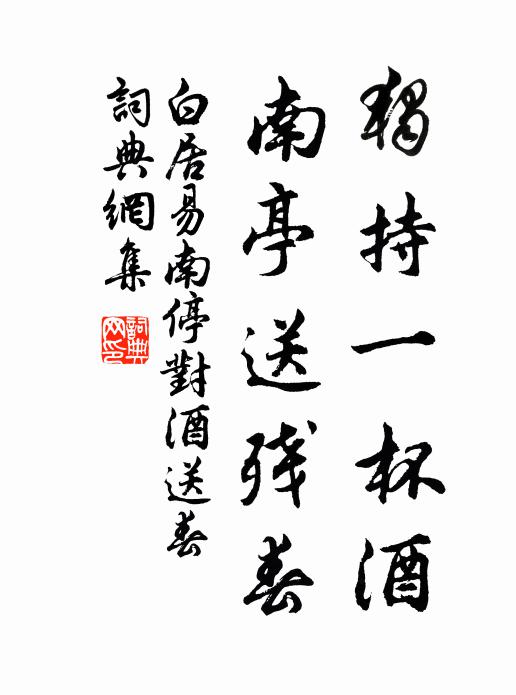 獨持一杯酒
南亭送残春
白居易南停對酒送春
詞典網集
詞典
网印